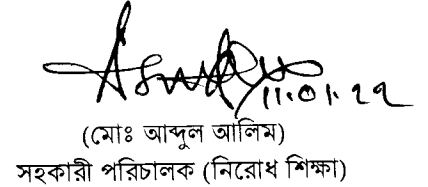 ১১.০১.২২
(মোঃ আব্দুল আলিম)
সহকারী পরিচালক (নিরোধ শিক্ষা)